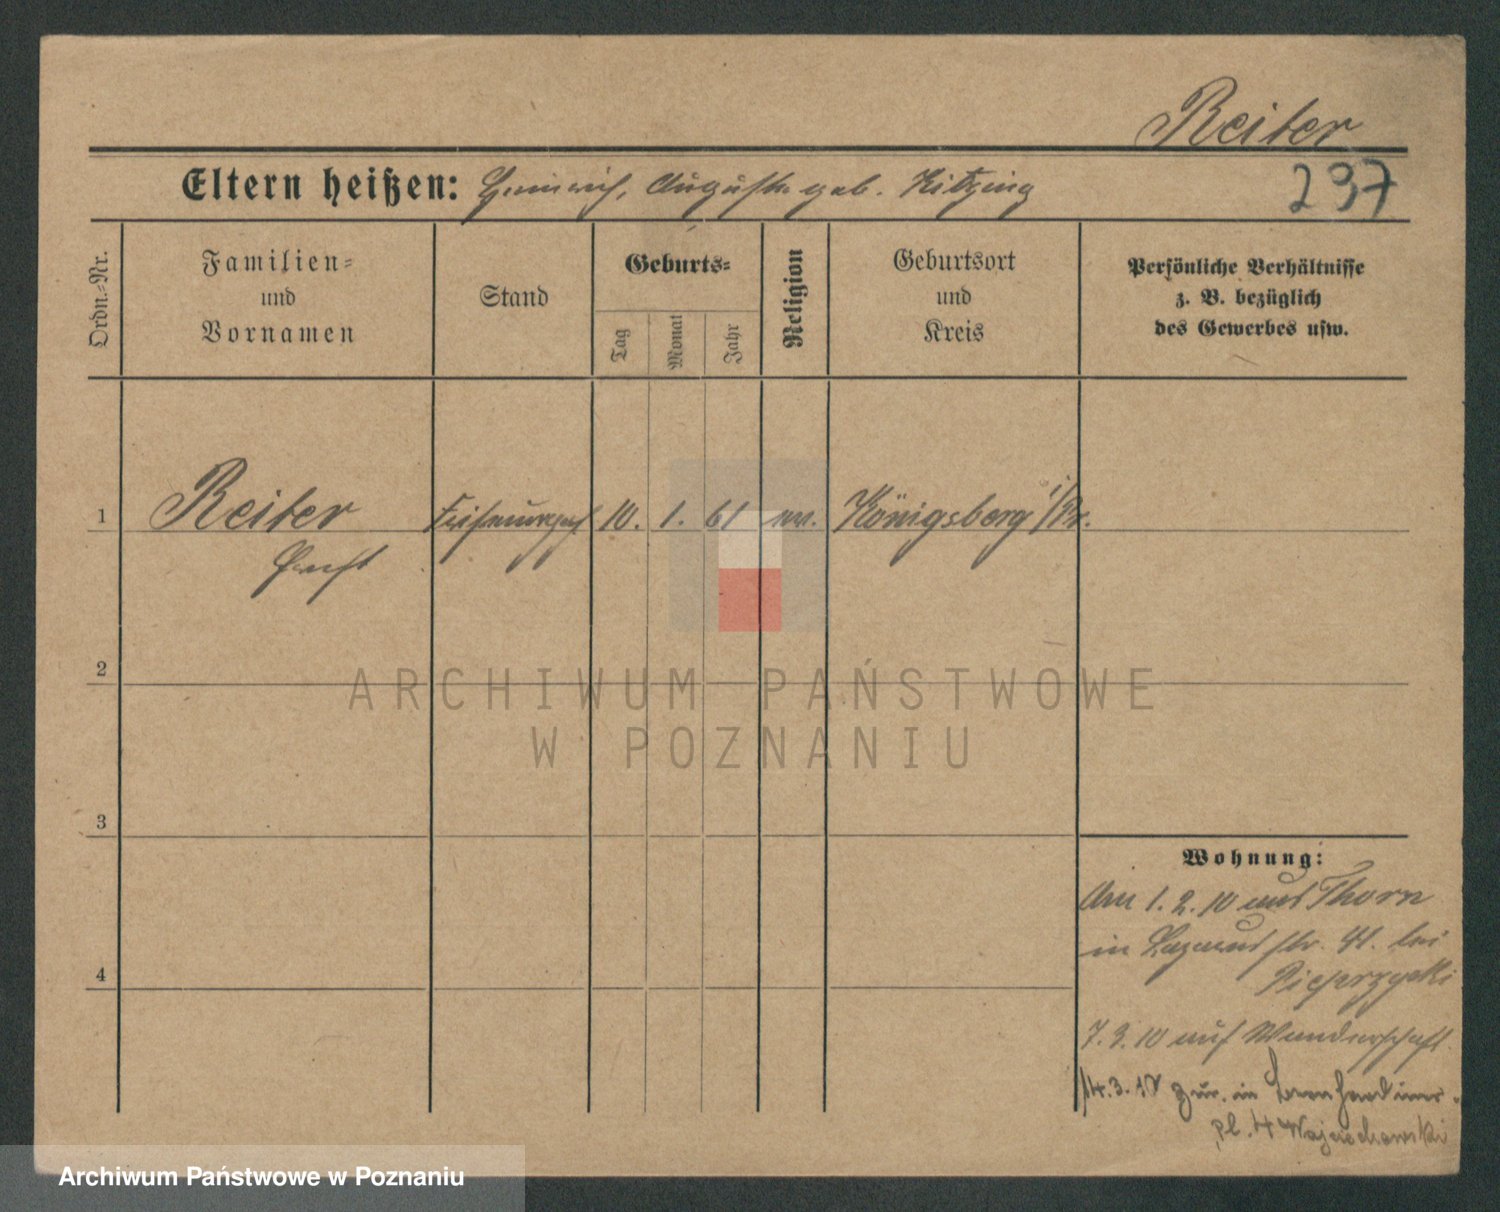 Reiter
Eltern heißen: Heinrich, Auguste geb. Kitzing
237
Ordn.-Nr.
Familien-
und
Vornamen
Stand
Geburts-
Tag
Monat
Jahr
Religion
Geburtsort
und
Kreis
Persönliche Verhältnisse
z. B. bezüglich
des Gewerbes usw.
1
Reiter
Ernst
10. 1. 61 ev.
Königsberg i/Pr.
2
ARCHIWUM PAŃSTWOWE
W POZNANIU
3
4
Wohnung:
Am 1.2.10 aus Thorn
in str. 41. bei
7.3.10 auf Wanderschaft.
14.3.10 zur. in Bernhardiner-
pl. 4 Wojciechowski
Archiwum Państwowe w Poznaniu